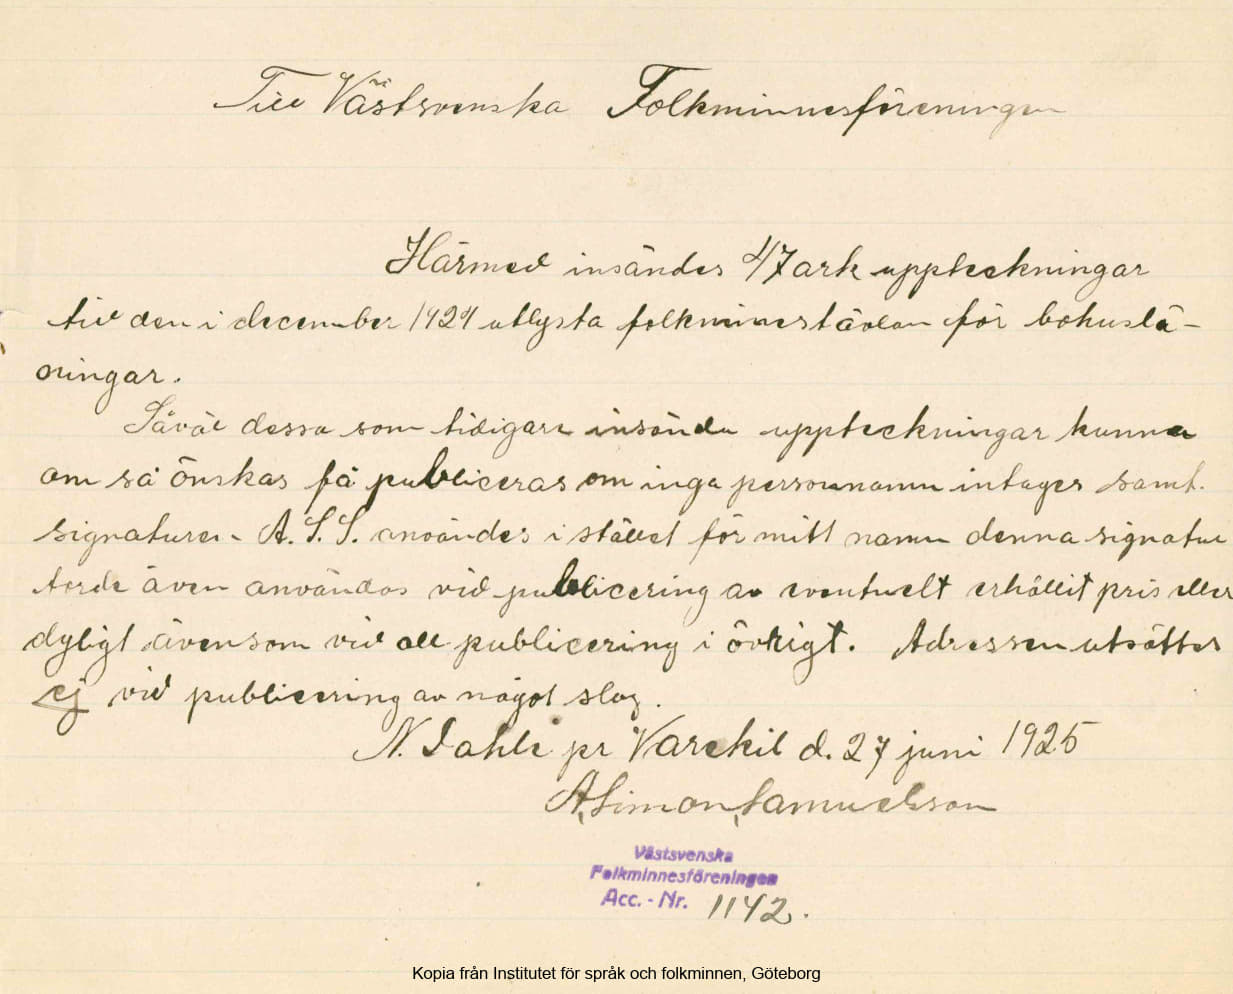 Till Västsvenska Folkminnesföreningen
Härmed insändes 47 ark uppteckningar
till den i december 1924 utlysta folkminnestävlan för bohuslä-
ningar.
Såväl dessa som tidigare insända uppteckningar kunna
om så önskas få publiceras om inga personnamn intages samt
signaturen A. S. S. användes i stället för mitt namn denna signatur
torde även användas vid publicering av eventuelt erhållit pris eller
dyligt ävensom vid all publicering i övrigt. Adressen utsättes
ej vid publicering av något slag.
N. Dahle pr Varekil d. 27 juni 1925
A. Simon Samuelsson
Västsvenska
Folkminnesföreningen
Acc. - Nr. 1142.
Kopia från Institutet för språk och folkminnen, Göteborg